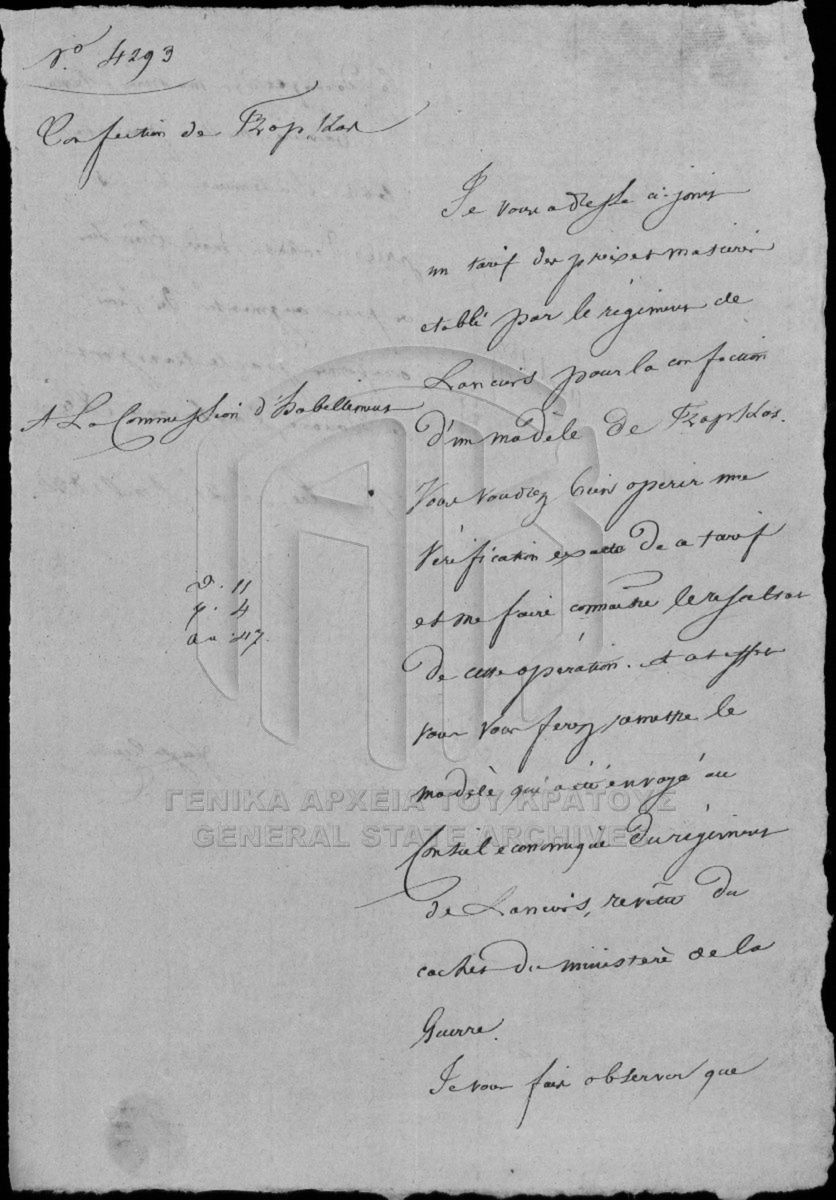 No. 4293
Confection de Tzapskas
Je vous adresse ci-joint
un tarif des prix et matières
etabli par le régiment de
Lanciers pour la confection
d'un modèle de Tzapskas.
A La Commission d'habillement
Vous voudrez bien opérer une
Vérification exacte de ce tarif
et me faire connaître le résultat
de cette opération. A cet effet
vous vous ferez remettre le
modèle qui a été envoyé au
Conseil économique du régiment
de Lanciers, revêtu du
cachet du ministère de la
Guerre.
Je vous fais observer que
D. 11
4
47
ΓΕΝΙΚΑ ΑΡΧΕΙΑ ΤΟΥ ΚΡΑΤΟΥΣ
GENERAL STATE ARCHIVES